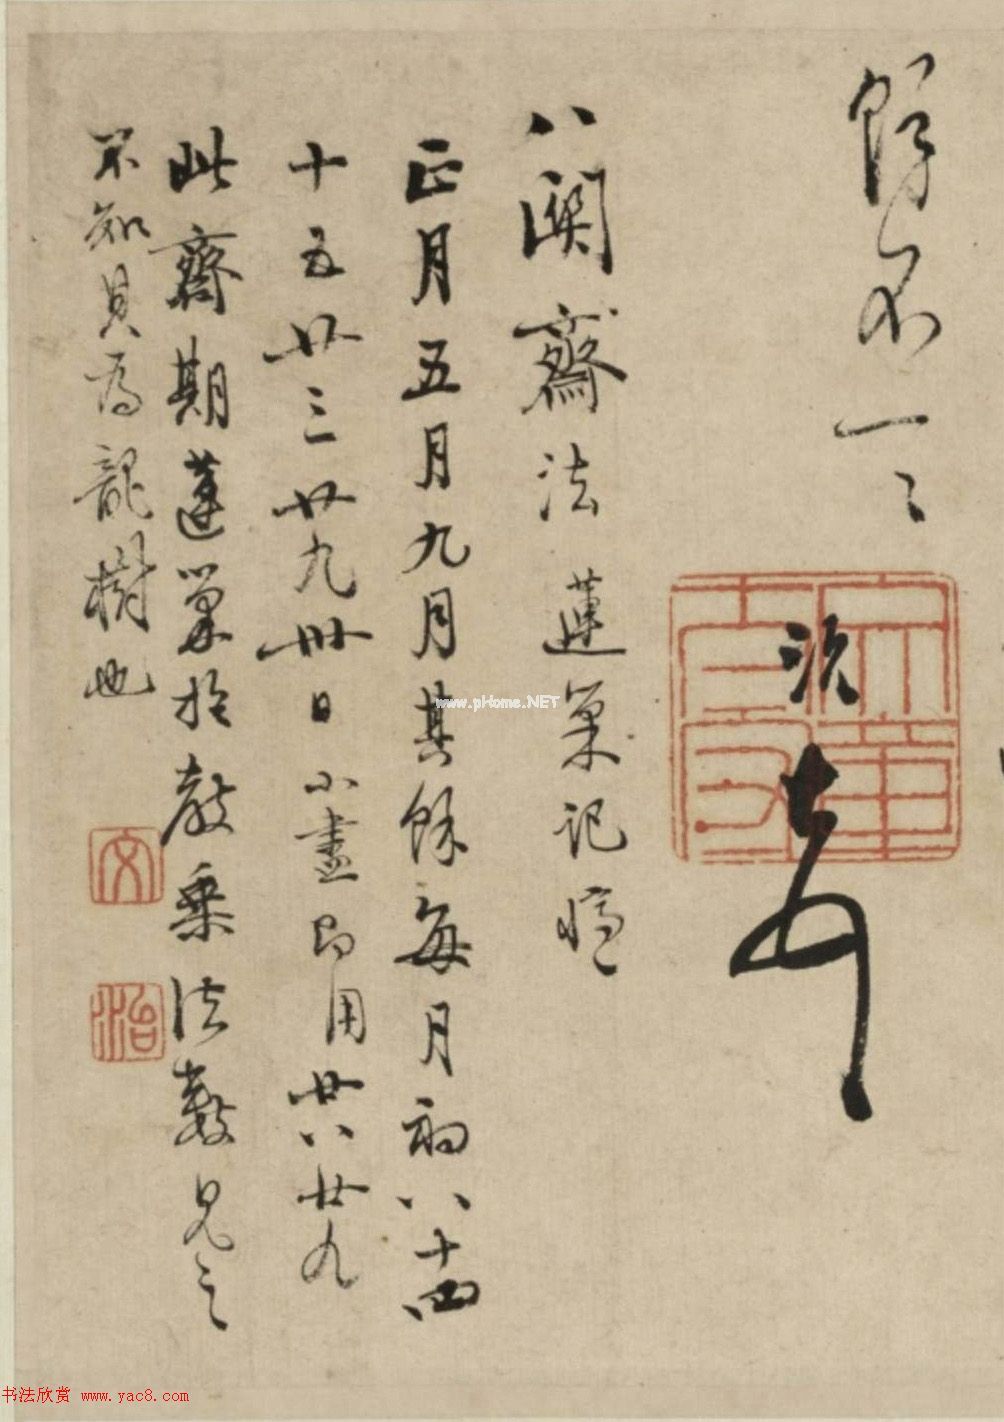 馀不一一
八関齋法 蓮巢记
正月五月九月其餘每月初八十四
十五廿三廿九卅日小盡即用廿八廿九
此齋期蓮巢於教乗法数見之
不知具為龍樹也
文
治
www.pHome.NET
书法欣赏 www.yac8.com